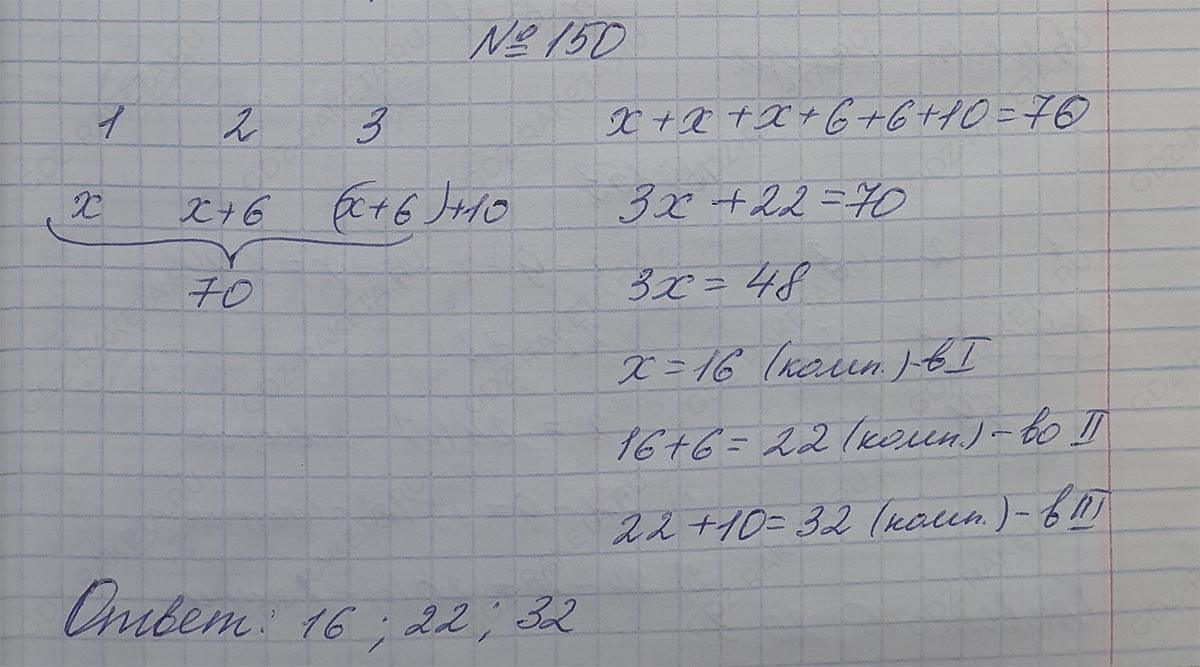 № 150
1 2 3
x x+6 (x+6)+10
70
x+x+x+6+6+10=70
3x+22=70
3x=48
x=16 (комп.)-в I
16+6=22 (комп.)-во II
22+10=32 (комп.)-в III
Ответ: 16; 22; 32